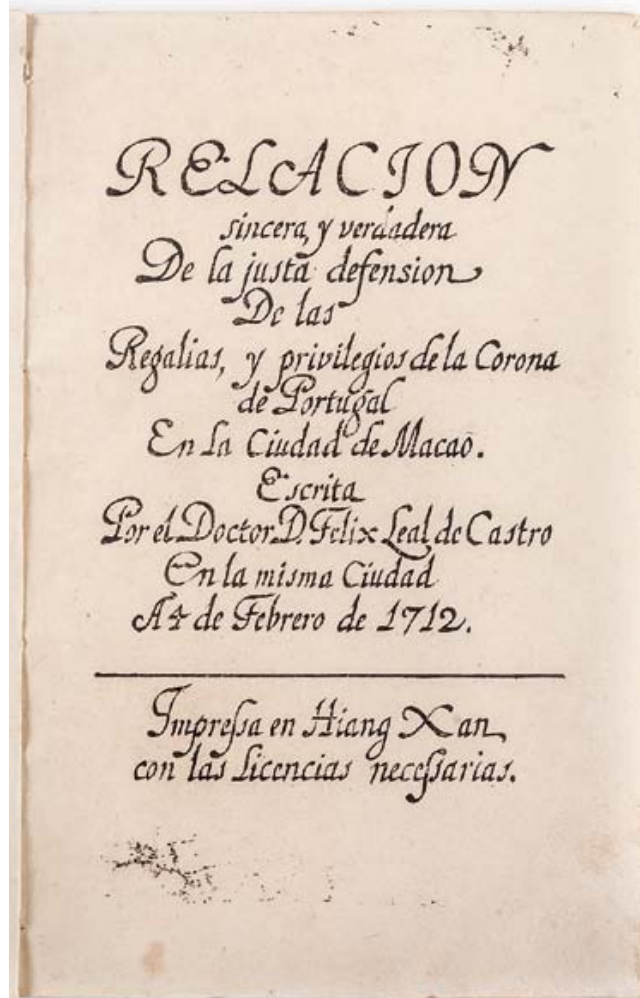 RELACION
sincera, y verdadera
De la justa defension
De las
Regalias, y privilegios de la Corona
de Portugal
En la Ciudad de Macao.
Escrita
Por el Doctor D. Felix Leal de Castro
En la misma Ciudad
A 4 de Febrero de 1712.
Impreſsa en Hiang Xan
con las Licencias neceſsarias.